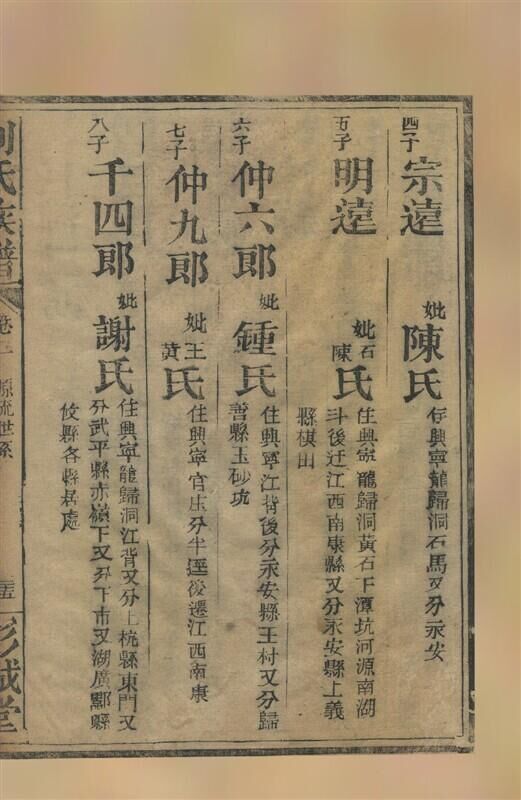 四子 宗遠 妣陳氏 住興寧龍歸洞石馬又分永安
五子 明遠 妣石陳氏 住興寧龍歸洞黃石下潭坑河源南湖
斗後迁江西南康縣又分永安縣上義
縣棋山
六子 仲六郎 妣鍾氏 住興寧江背後分永安縣王村又分歸
善縣玉砂坑
七子 仲九郎 妣王黃氏 住興寧官庄分半逕後遷江西南康
八子 千四郎 妣謝氏 住興寧龍歸洞江背又分上杭縣東門又
分武平縣赤嶺下又分下市又湖廣酃縣
攸縣各縣居處
氏族譜 卷一 源流世系 彭城堂